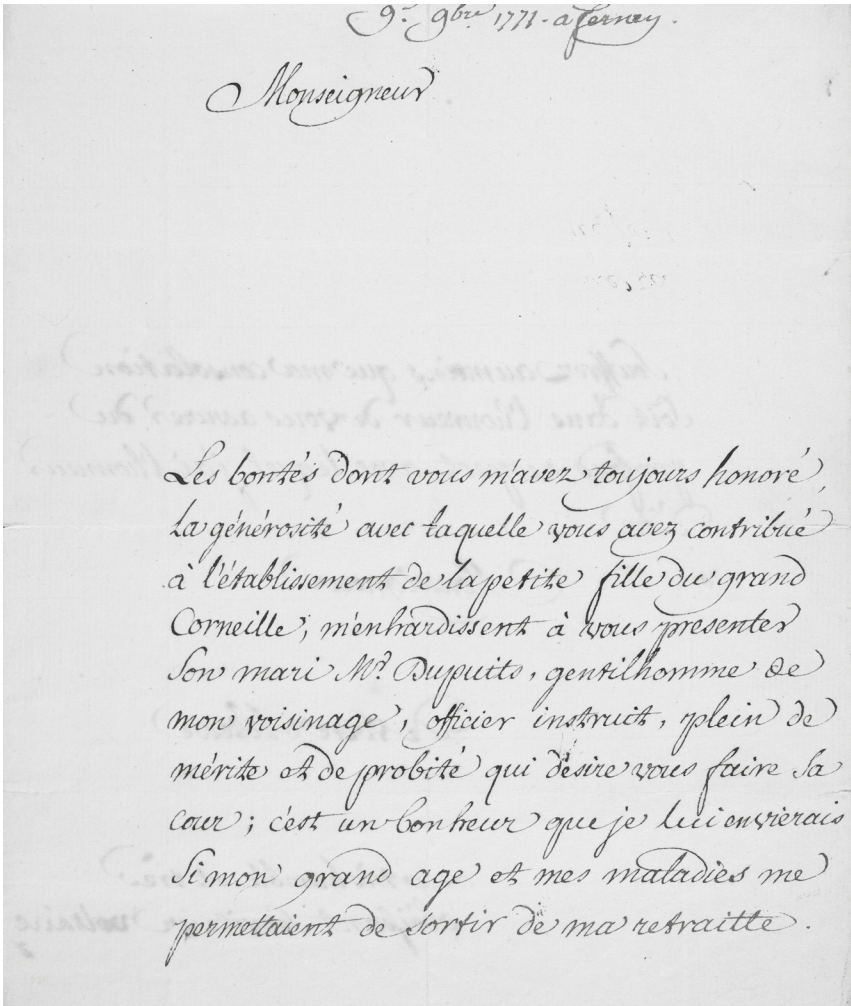 9e. 9bre 1771. a ferney.
Monseigneur
Les bontés dont vous m'avez toujours honoré,
la générosité avec laquelle vous avez contribué
à l'établissement de la petite fille du grand
Corneille, m'enhardissent à vous presenter
son mari Mr. Dupuits, gentilhomme de
mon voisinage, officier instruit, plein de
mérite et de probité qui désire vous faire sa
cour; c'est un bonheur que je lui envierais
si mon grand age et mes maladies me
permettaient de sortir de ma retraitte.